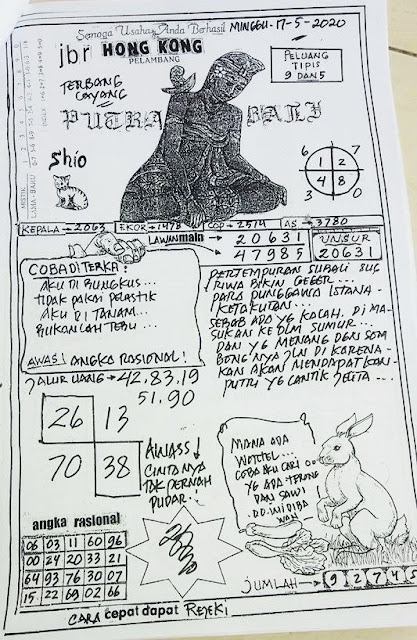 Semoga Usaha Anda Berhasil
MINGGU. 17-5-2020
jbr HONG KONG
PELAMBANG
TERBANG
LAYANG
PELUANG
TIPIS
9 DAN 5
PUTRA BALI
Shio
6 7
1 2
4 8
3 0
KEPALA → 2063
EKOR → 1478
COP → 2514
AS → 3780
LAWAN main
20631
47985
UNSUR
20631
COBA DI TERKA:
AKU DI BUNGKUS...
TIDAK PAKAI PELASTIK
AKU DI TANAM..
BUKANLAH TEBU...
AWAS! ANGKA RASIONAL!
PERTEMPURAN SUBALI SUG
RIWA BIKIN GEGER...
PARA PUNGGAWA ISTANA
KETAKUTAN...
SEBAB ADA YG KALAH, DI MA-
SUKAN KE DLM SUMUR...
DAN YG MENANG DGN SOM
BONG NYA JLN DI KARENA-
KAN AKAN MENDAPAT KAN
PUTRI YG CANTIK JELITA...
JALUR UANG → 42.83.19
51.90
26 13
70 38
AWASS!
CINTANYA
TAK PERNAH
PUDAR!
MANA ADA
WORTEL...
COBA AKU CARI
YG ADA TERONG
DAN SAWI
DI BA
WAH
angka rasional
06 03 11 60 96
00 24 20 33 21
64 93 76 30 07
15 22 69 02 66
JUMLAH → 9 2 7 4 5
CARA cepat dapat REJEKI